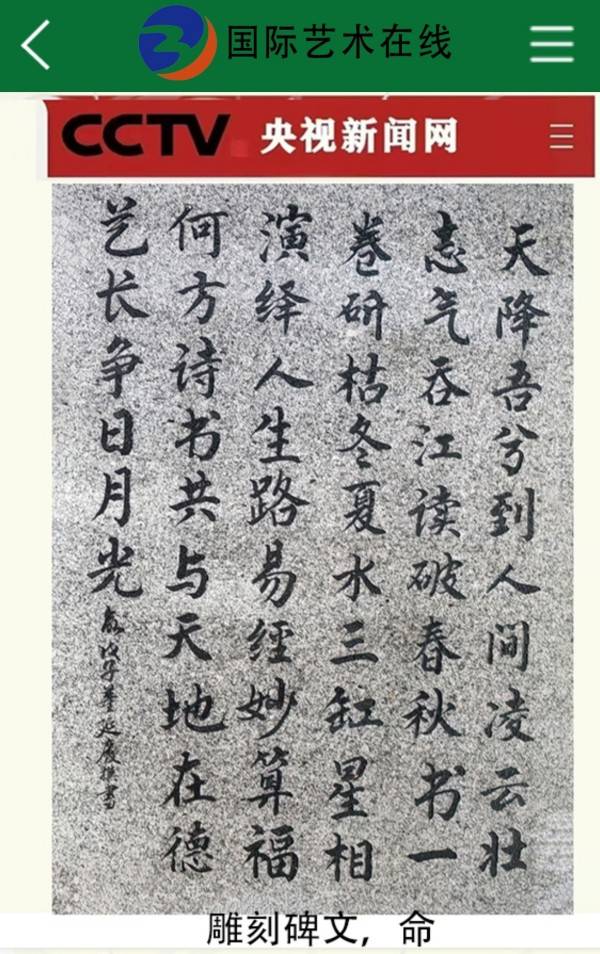 国际艺术在线
CCTV 央视新闻网
天降吾兮到人间凌云壮
志气吞江读破春秋书一
卷研枯冬夏水三缸星相
演绎人生路易经妙算福
何方诗书共与天地在德
艺长争日月光
董延庆撰书
雕刻碑文，命